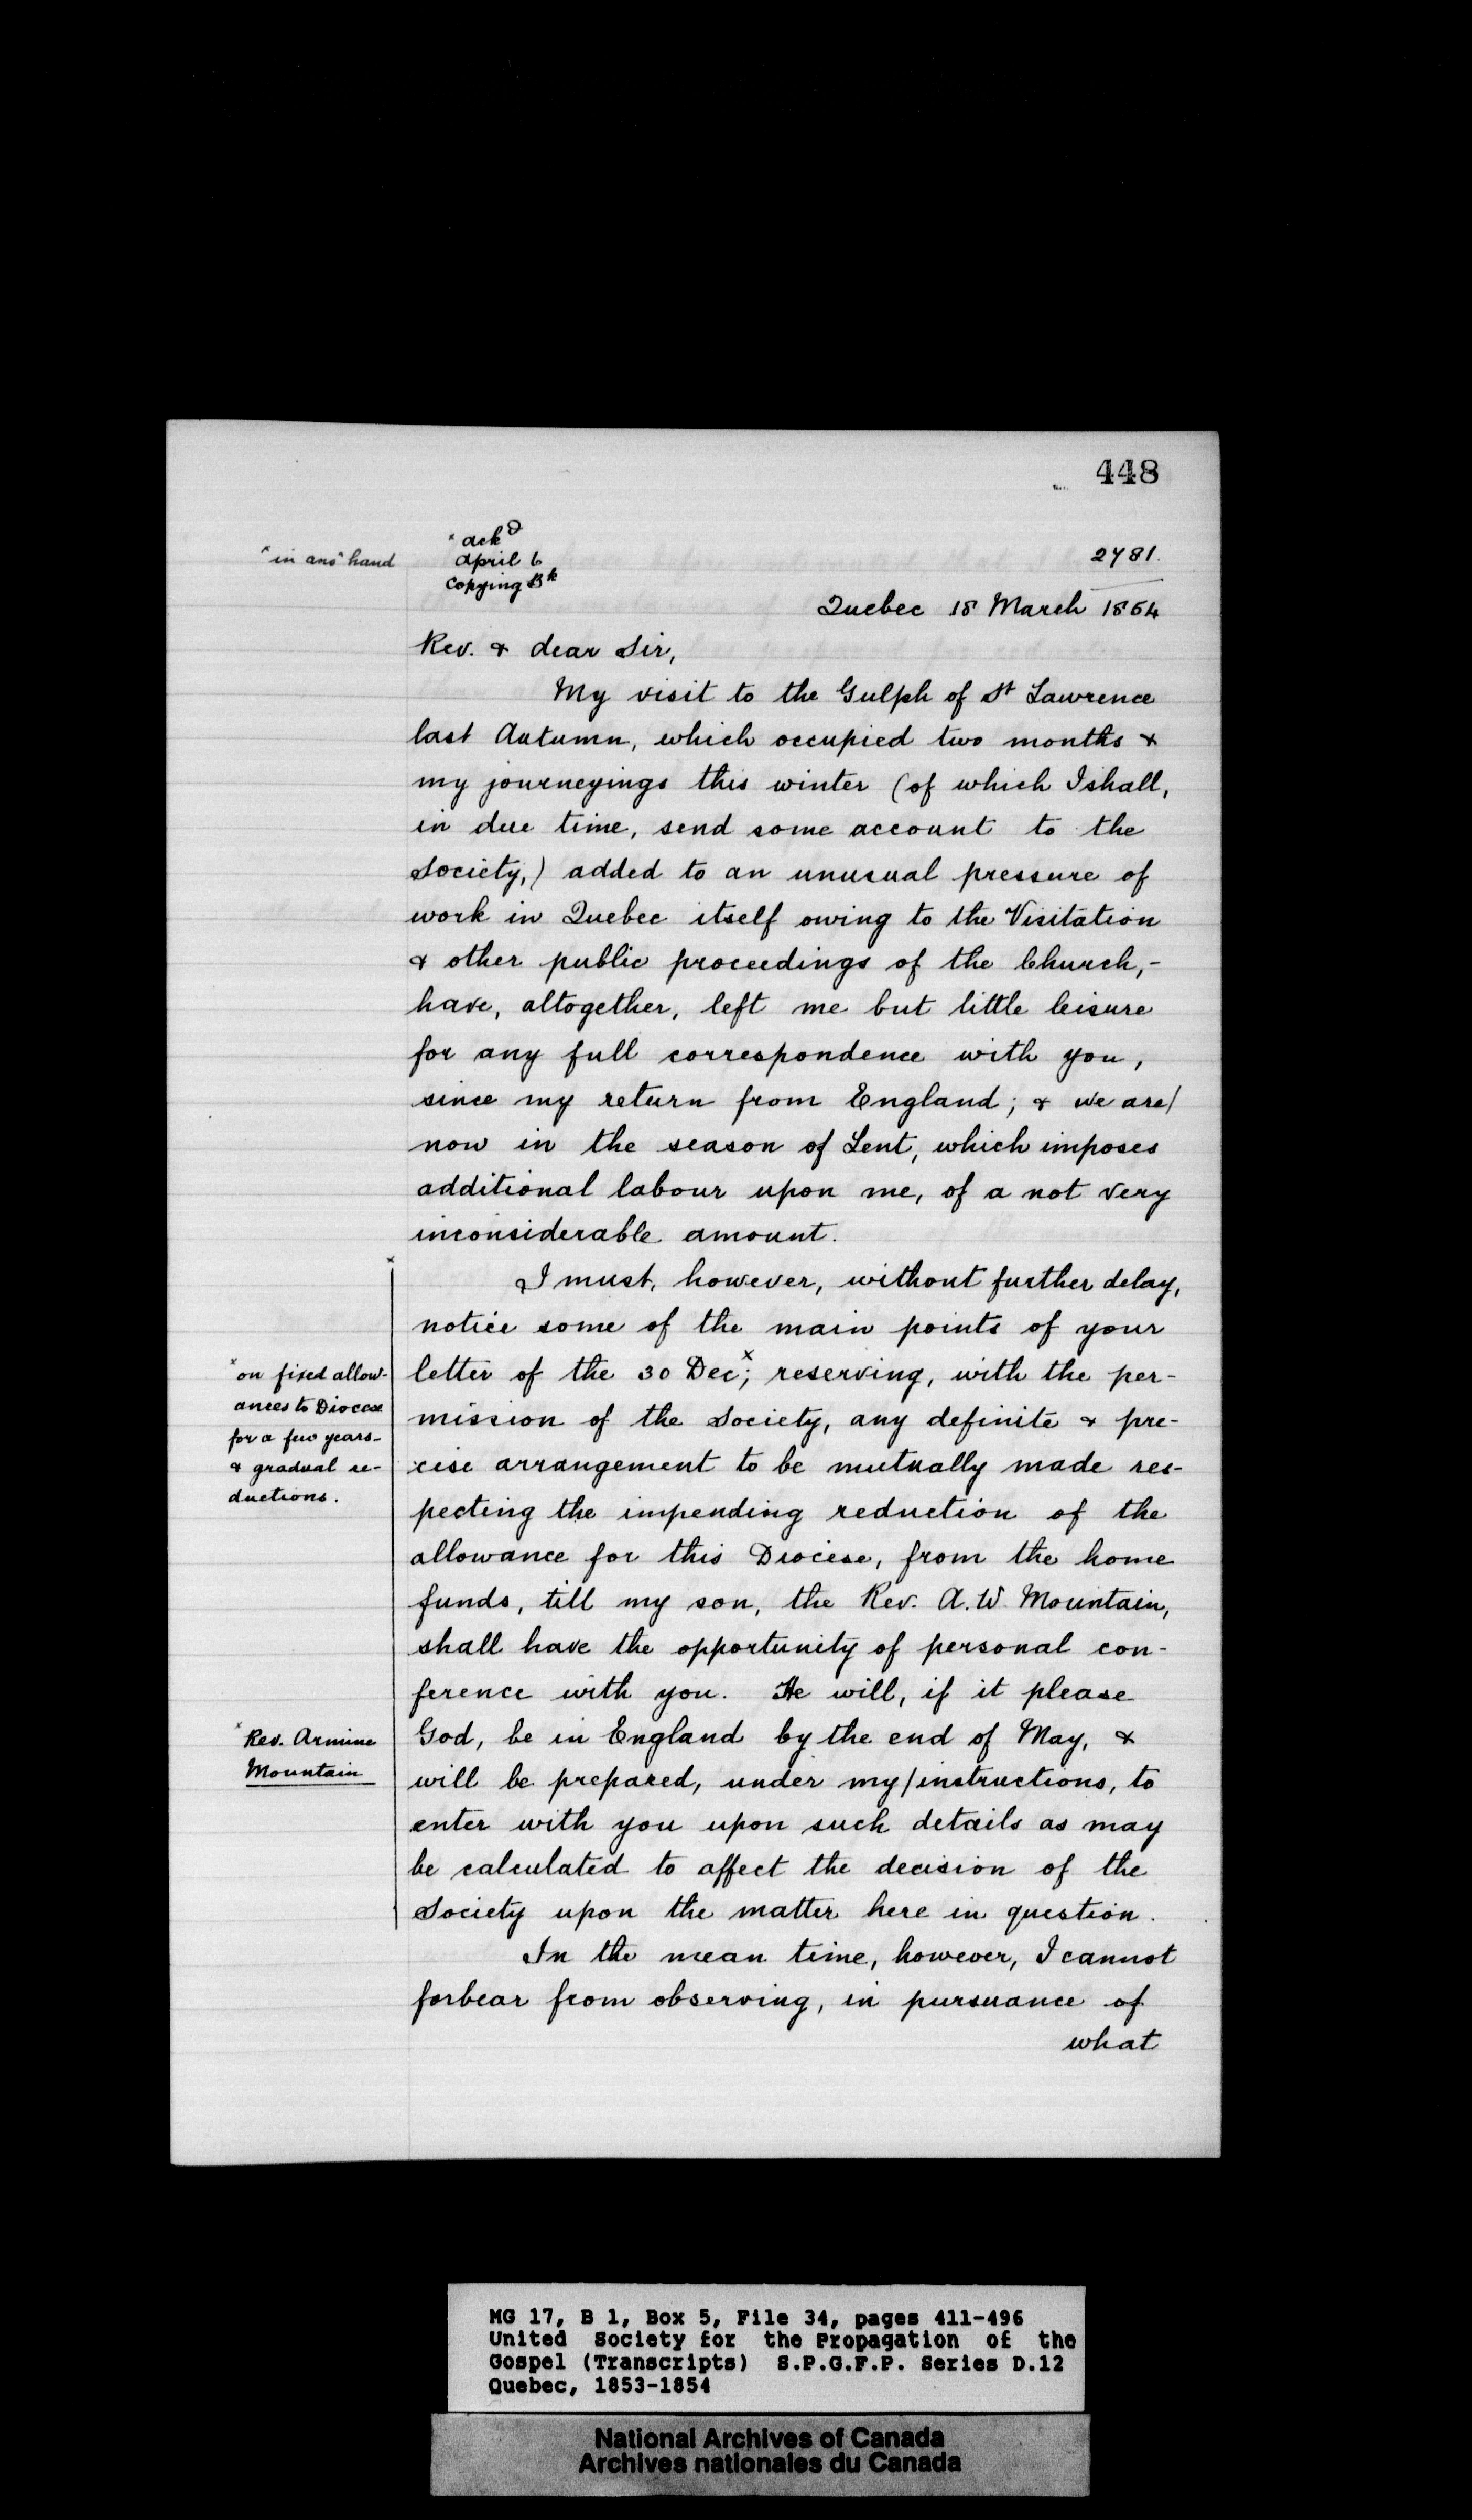 448
x in anr hand
x ackd
April 6
Copying Bk
2781.
Quebec 18 March 1854
Rev. & dear Sir,
My visit to the Gulph of St Lawrence
last Autumn, which occupied two months &
my journeyings this winter (of which I shall,
in due time, send some account to the
Society,) added to an unusual pressure of
work in Quebec itself owing to the Visitation
& other public proceedings of the Church,-
have, altogether, left me but little leisure
for any full correspondence with you,
since my return from England; & we are/
now in the season of Lent, which imposes
additional labour upon me, of a not very
inconsiderable amount.
x
I must, however, without further delay,
notice some of the main points of your
letter of the 30 Dec x; reserving, with the per-
mission of the Society, any definite & pre-
cise arrangement to be mutually made res-
pecting the impending reduction of the
allowance for this Diocese, from the home
funds, till my son, the Rev. A. W. Mountain,
shall have the opportunity of personal con-
ference with you. He will, if it please
God, be in England by the end of May, &
will be prepared, under my/instructions, to
enter with you upon such details as may
be calculated to affect the decision of the
Society upon the matter here in question.
x on fixed allow-
ances to Diocese
for a few years-
& gradual re-
ductions.
x Rev. Armine
Mountain
In the mean time, however, I cannot
forbear from observing, in pursuance of
what
MG 17, B 1, Box 5, File 34, pages 411-496
United Society for the Propagation of the
Gospel (Transcripts) S.P.G.F.P. Series D.12
Quebec, 1853-1854
National Archives of Canada
Archives nationales du Canada